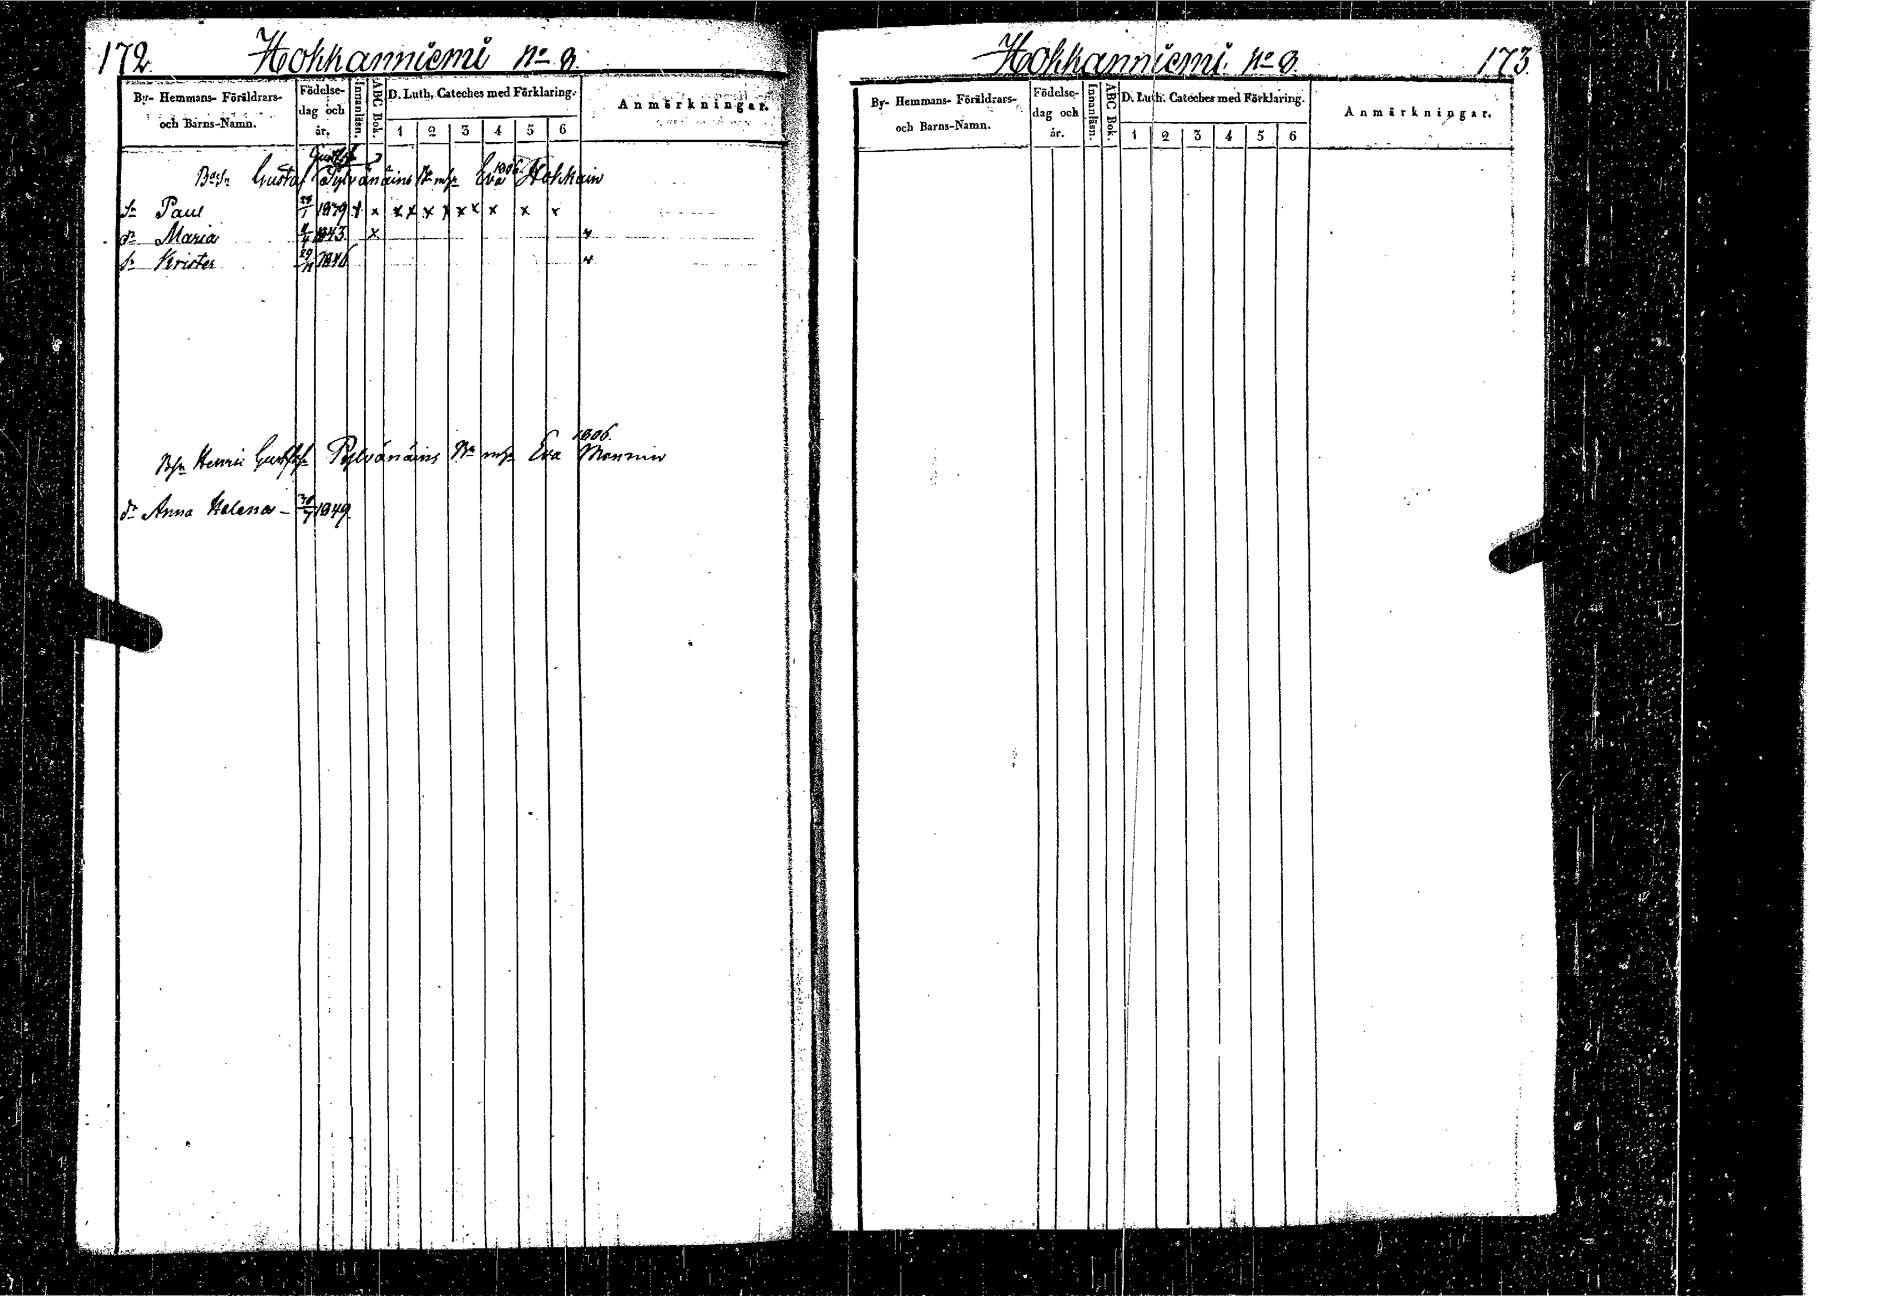 172. Hokkanniemi No 8.
By- Hemmans- Föräldrars- och Barns-Namn.
Födelse- dag och år.
Innanläsn.
ABC Bok.
D. Luth. Cateches med Förklaring.
1 2 3 4 5 6
Anmärkningar.
Gustaf Pylvänäins Eva Hokkain
1806.
Sn Paul 1839 x x x x x x x x x x
dr Maria 1843 x
Sn Krister 1846
1806.
Henric Pylvänäins Eva Monnin
dr Anna Helena 1849.
Hokkanniemi No 8. 173.
By- Hemmans- Föräldrars- och Barns-Namn.
Födelse- dag och år.
Innanläsn.
ABC Bok.
D. Luth. Cateches med Förklaring.
1 2 3 4 5 6
Anmärkningar.